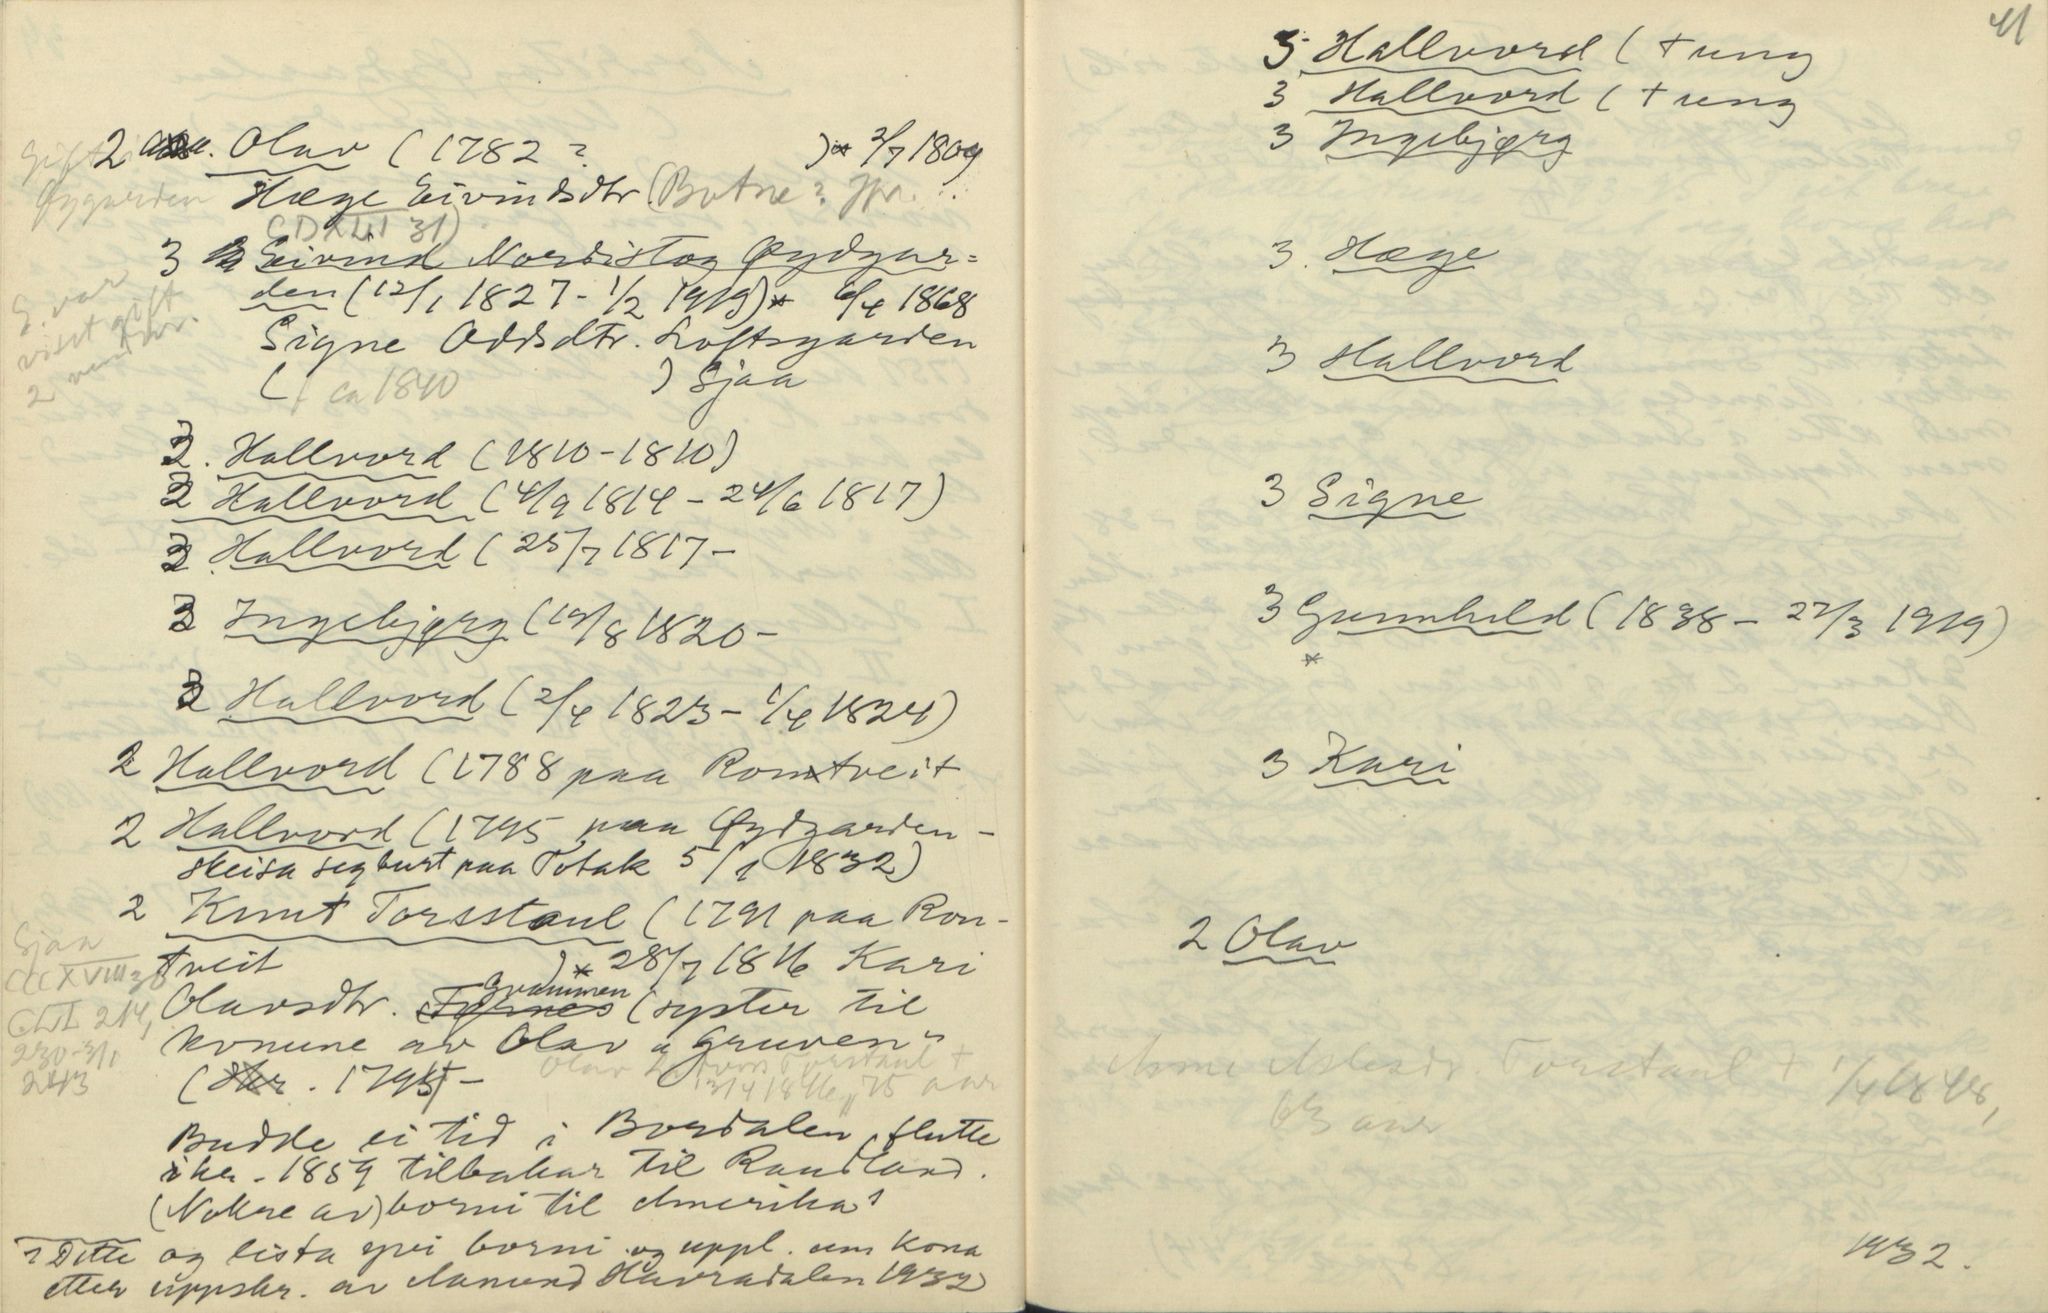 2 Olav (1782 ? )* 2/7 1809
Hæge Eivindsdtr. (Botne?
CDXLII 31)
Gift i
Øygarden
3 Eivind Nordistog Øydgar=
den (12/1 1827 - 1/2 1919)* 6/4 1868
Signe Oddsdtr. Loftsgarden
( ca 1840 ) Sjaa
E. var
visst gift
2 vend.
3. Hallvord (1810-1810)
3 Hallvord (4/9 1814 - 24/6 1817)
3 Hallvord (25/7 1817 -
3 Ingebjørg (19/8 1820 -
3 Hallvord (2/4 1823 - 1/4 1824)
2 Hallvord (1788 paa Romtveit
2 Hallvord (1795 paa Øydgarden -
skeisa seg burt paa Totak 5/1 1832)
2 Knut Torsstaul (1791 paa Rom-
tveit )* 28/7 1816 Kari
Olavsdtr. Grammen (syster til
konune av Olav "Gruven"
(Skr. 1795 -
Sjaa
CCCXVIII 38
214,
230-31,
243
Olav Torstaul +
13/4 1846, 75 aar
Budde ei tid i Bordalen, flutte
ikr. 1859 tilbakar til Raudland.
(Nokre av) borni til Amerika ¹
¹ Dette og lista yvi borni og uppl. um kona
etter uppskr. av Aamund Havradalen 1932
41
3 Hallvord ( + ung
3 Hallvord ( + ung
3 Ingebjørg
3. Hæge
3 Hallvord
3 Signe
3 Gunnhild (1838 - 27/3 1919)
*
3 Kari
2 Olav
Anne Aslesdr. Torstaul + 1/4 1848,
63 aar
1932.